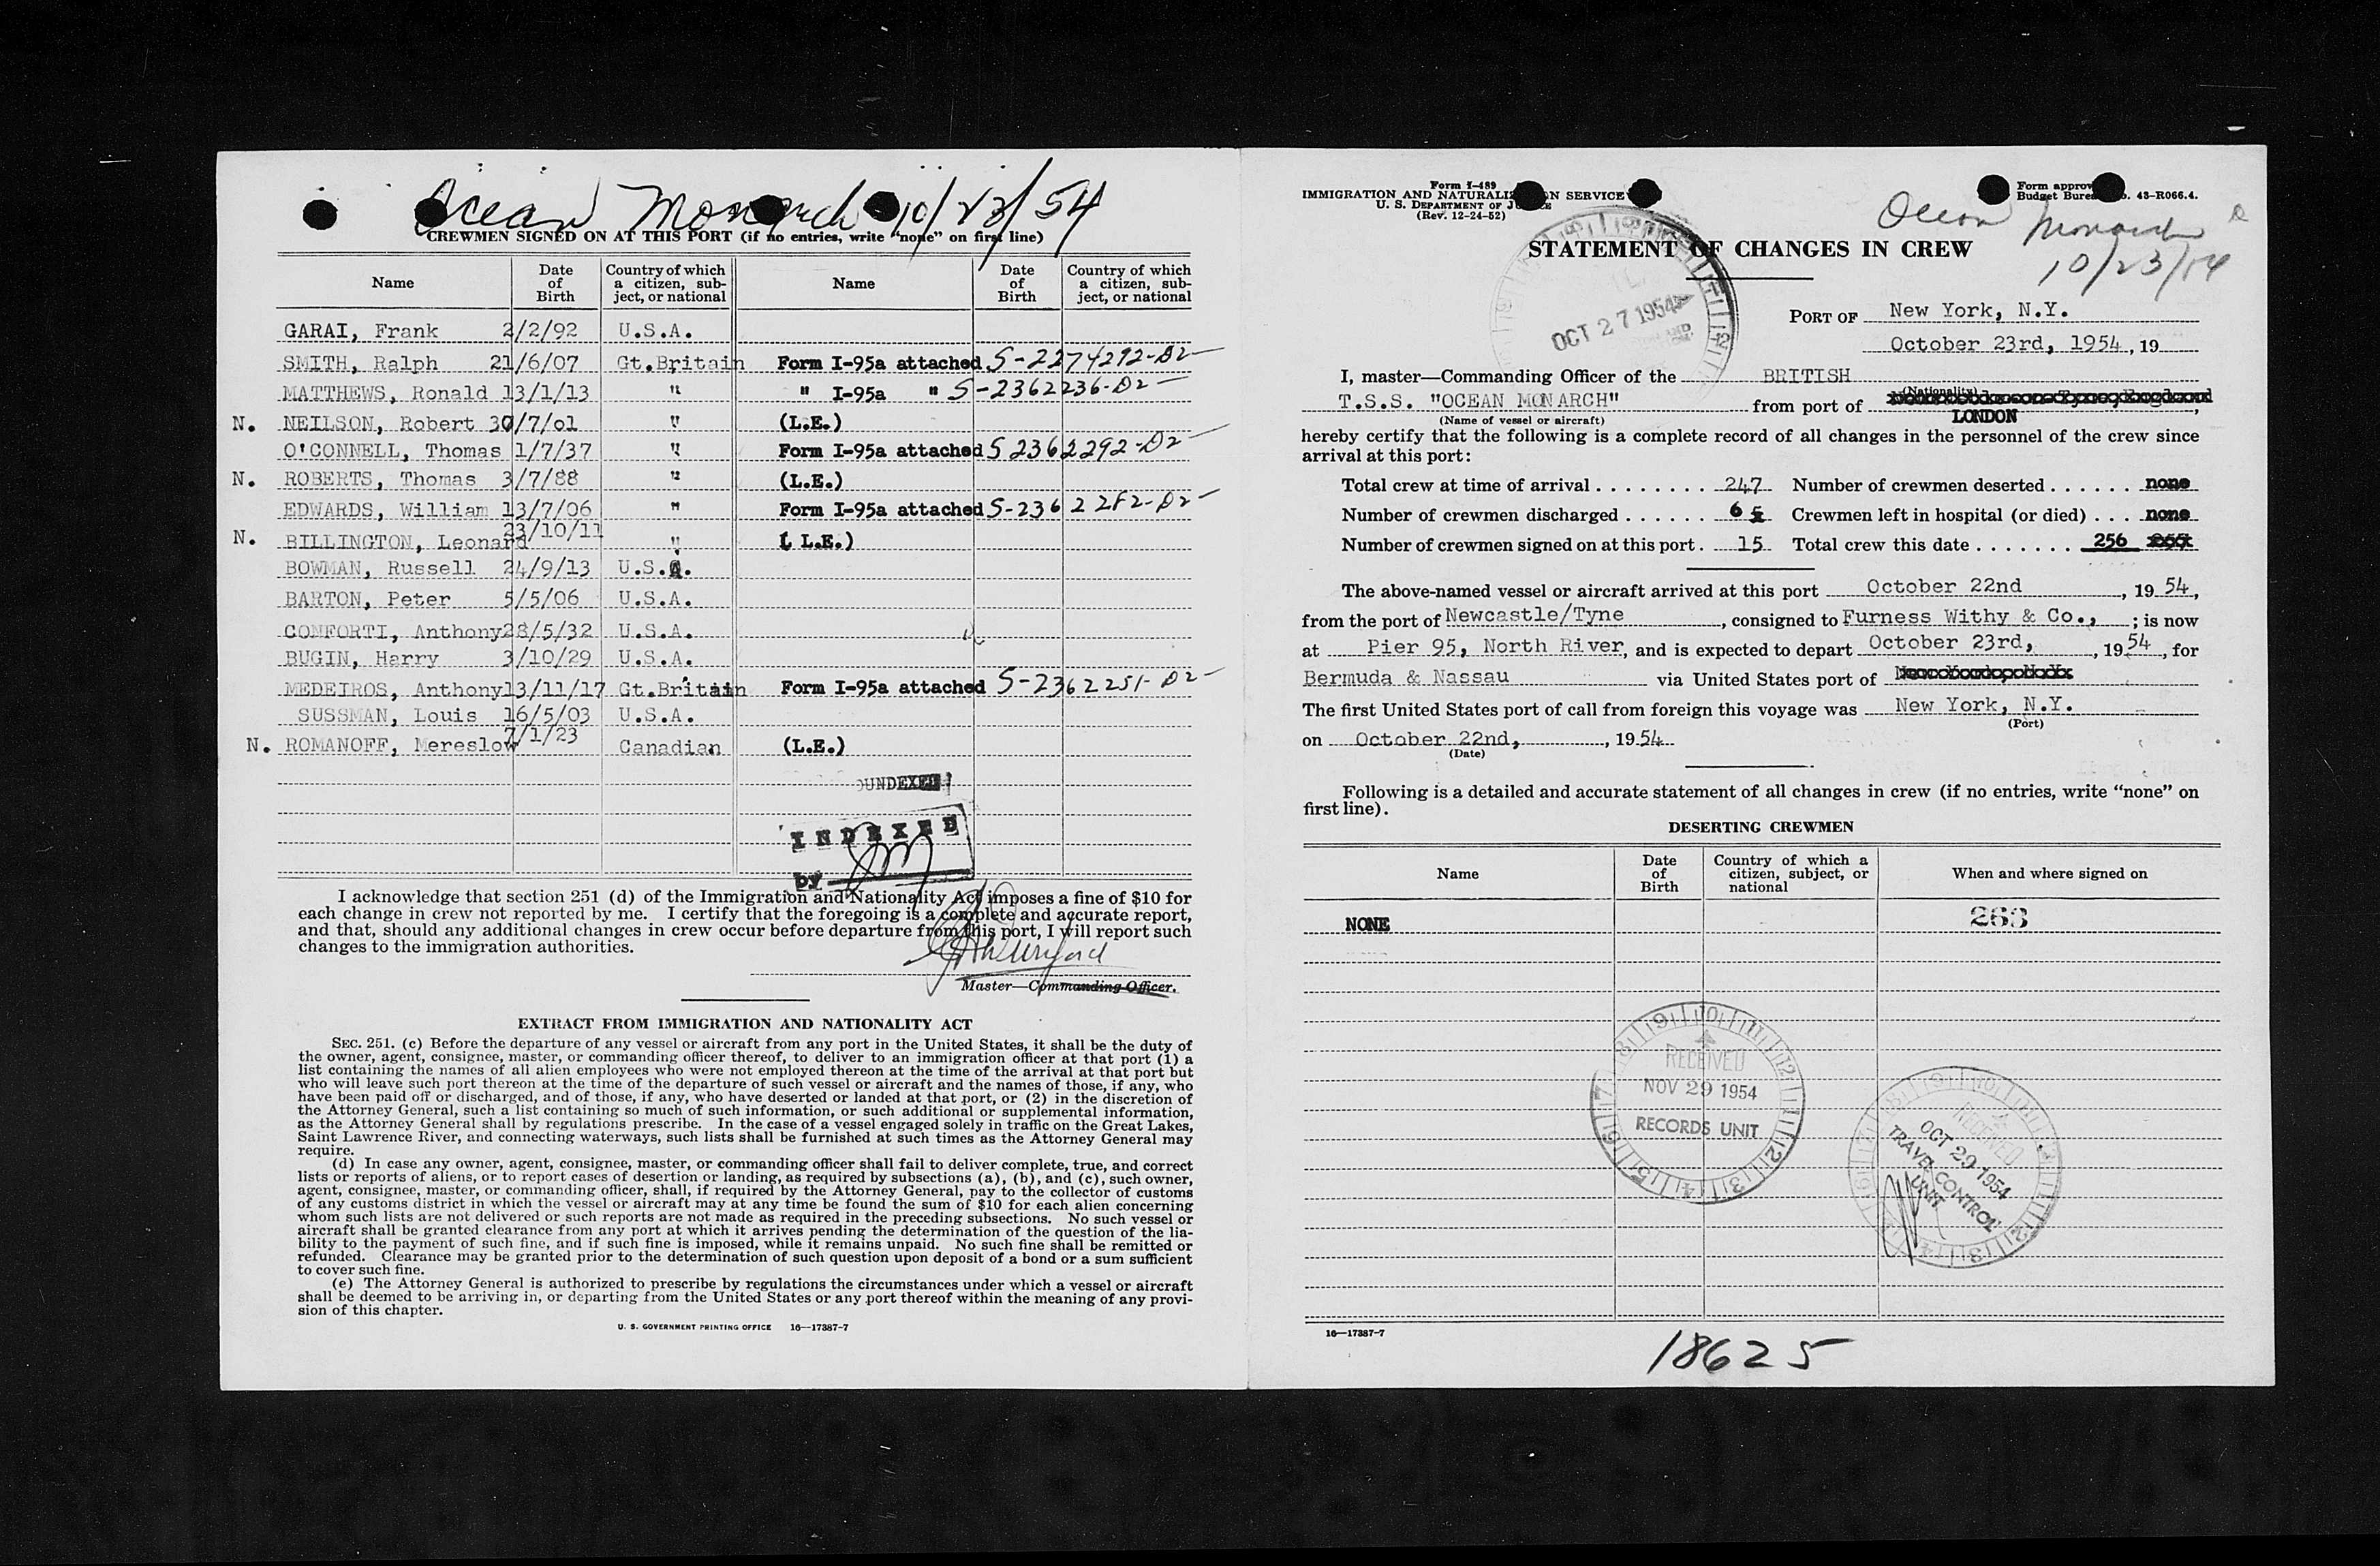 Ocean Monarch 10/23/54
CREWMEN SIGNED ON AT THIS PORT (if no entries, write "none" on first line)
Name Date of Birth Country of which a citizen, subject, or national Name Date of Birth Country of which a citizen, subject, or national
GARAI, Frank 2/2/92 U.S.A.
SMITH, Ralph 21/6/07 Gt.Britain Form I-95a attached S-2274292-D2-
MATTHEWS, Ronald 13/1/13 " " I-95a " S-2362236-D2-
N. NEILSON, Robert 30/7/01 " (L.E.)
O'CONNELL, Thomas 1/7/37 " Form I-95a attached S 2362292-D2-
N. ROBERTS, Thomas 3/7/88 " (L.E.)
EDWARDS, William 13/7/06 " Form I-95a attached S-2362282-D2-
N. BILLINGTON, Leonard 23/10/11 " ( L.E.)
BOWMAN, Russell 24/9/13 U.S.A.
BARTON, Peter 5/5/06 U.S.A.
CONFORTI, Anthony 28/5/32 U.S.A.
BUGIN, Harry 3/10/29 U.S.A.
MEDEIROS, Anthony 13/11/17 Gt.Britain Form I-95a attached S-2362251-D2-
SUSSMAN, Louis 16/5/03 U.S.A.
N. ROMANOFF, Mereslow 7/1/23 Canadian (L.E.)
INDEXED
by
I acknowledge that section 251 (d) of the Immigration and Nationality Act imposes a fine of $10 for
each change in crew not reported by me. I certify that the foregoing is a complete and accurate report,
and that, should any additional changes in crew occur before departure from this port, I will report such
changes to the immigration authorities.
Master—Commanding Officer.
EXTRACT FROM IMMIGRATION AND NATIONALITY ACT
SEC. 251. (c) Before the departure of any vessel or aircraft from any port in the United States, it shall be the duty of
the owner, agent, consignee, master, or commanding officer thereof, to deliver to an immigration officer at that port (1) a
list containing the names of all alien employees who were not employed thereon at the time of the arrival at that port but
who will leave such port thereon at the time of the departure of such vessel or aircraft and the names of those, if any, who
have been paid off or discharged, and of those, if any, who have deserted or landed at that port, or (2) in the discretion of
the Attorney General, such a list containing so much of such information, or such additional or supplemental information,
as the Attorney General shall by regulations prescribe. In the case of a vessel engaged solely in traffic on the Great Lakes,
Saint Lawrence River, and connecting waterways, such lists shall be furnished at such times as the Attorney General may
require.
(d) In case any owner, agent, consignee, master, or commanding officer shall fail to deliver complete, true, and correct
lists or reports of aliens, or to report cases of desertion or landing, as required by subsections (a), (b), and (c), such owner,
agent, consignee, master, or commanding officer, shall, if required by the Attorney General, pay to the collector of customs
of any customs district in which the vessel or aircraft may at any time be found the sum of $10 for each alien concerning
whom such lists are not delivered or such reports are not made as required in the preceding subsections. No such vessel or
aircraft shall be granted clearance from any port at which it arrives pending the determination of the question of the lia-
bility to the payment of such fine, and if such fine is imposed, while it remains unpaid. No such fine shall be remitted or
refunded. Clearance may be granted prior to the determination of such question upon deposit of a bond or a sum sufficient
to cover such fine.
(e) The Attorney General is authorized to prescribe by regulations the circumstances under which a vessel or aircraft
shall be deemed to be arriving in, or departing from the United States or any port thereof within the meaning of any provi-
sion of this chapter.
U. S. GOVERNMENT PRINTING OFFICE 16—17387-7
Form I-489
IMMIGRATION AND NATURALIZATION SERVICE
U. S. DEPARTMENT OF JUSTICE
(Rev. 12-24-52)
Form approved
Budget Bureau No. 43-R066.4.
Ocean Monarch
10/23/54
STATEMENT OF CHANGES IN CREW
OCT 27 1954
PORT OF New York, N.Y.
October 23rd, 1954, 19
I, master—Commanding Officer of the BRITISH
(Nationality)
T.S.S. "OCEAN MONARCH" from port of LONDON,
(Name of vessel or aircraft)
hereby certify that the following is a complete record of all changes in the personnel of the crew since
arrival at this port:
Total crew at time of arrival . . . . . . . . 247 Number of crewmen deserted . . . . . . none
Number of crewmen discharged . . . . . . 6 Crewmen left in hospital (or died) . . . none
Number of crewmen signed on at this port . 15 Total crew this date . . . . . . . 256
The above-named vessel or aircraft arrived at this port October 22nd, 19 54,
from the port of Newcastle/Tyne, consigned to Furness Withy & Co., ; is now
at Pier 95, North River, and is expected to depart October 23rd, , 19 54, for
Bermuda & Nassau via United States port of
The first United States port of call from foreign this voyage was New York, N.Y.
(Port)
on October 22nd, , 19 54.
(Date)
Following is a detailed and accurate statement of all changes in crew (if no entries, write "none" on
first line).
DESERTING CREWMEN
Name Date of Birth Country of which a citizen, subject, or national When and where signed on
NONE 263
RECEIVED
NOV 29 1954
RECORDS UNIT
RECEIVED
OCT 29 1954
TRAVEL CONTROL
UNIT
16—17387-7
18625